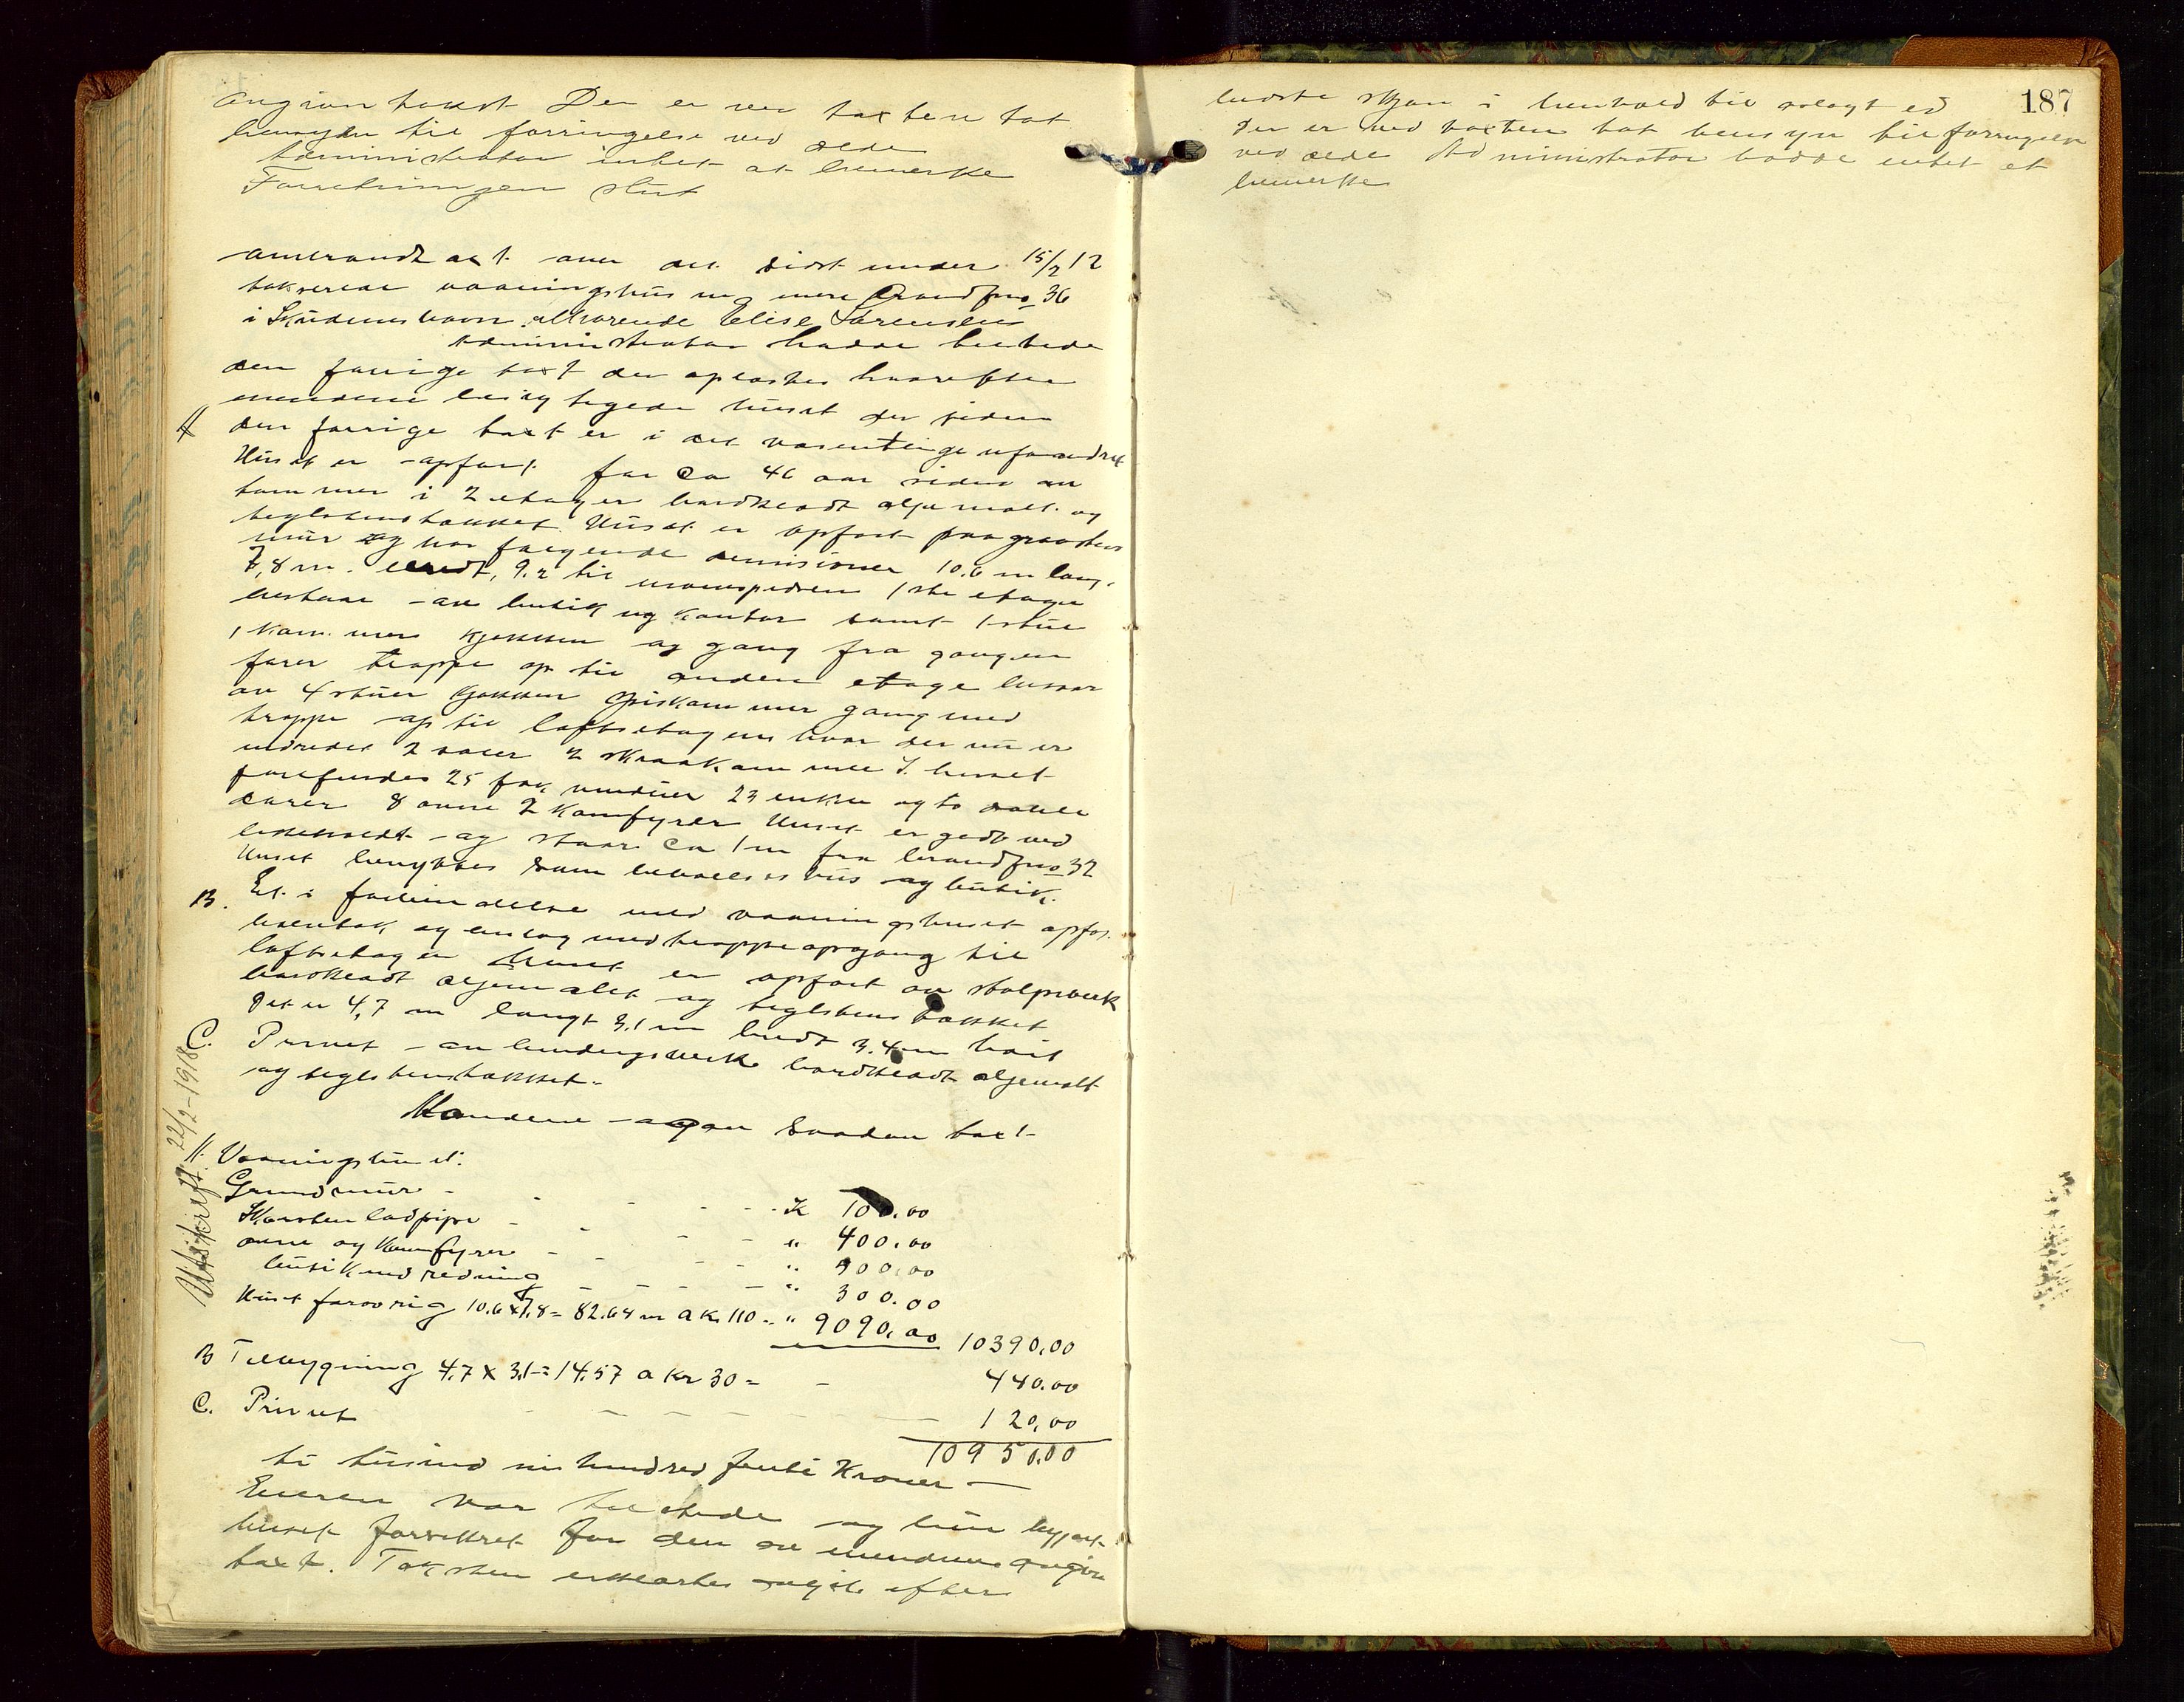 angivne takst Der er ved taxten tat
hensyn til forringelse ved ælde
Administrator intet at bemerke
Forretningen slut
ombrandtaxt over det sidst under 15/2 12
takserede vaaningshus m mere Brandfno 36
i Skudeneshavn tilhørende Elise Sørensen
Administrator hadde tilstede
den forrige taxt der oplæstes hvorefter
mendene besigtigede huset der siden
A den forrige taxt er i det væsentlige uforandret
Huset er opført for ca 46 aar siden av
tømmer i 2 etager bordklædt oljemalt og
teglstenstækket Huset er opført paa graastens
mur og har følgende demisioner 10.6 m lang.
7,8 m. bredt, 9.2 til mønespidsen 1ste etage
bestaar av butik og kontor samt 1 stue
1 kammer kjøkken og gang fra gangen
fører trappe op til anden etage bestaar
av 4 stuer kjøkken spiskammer gang med
trappe op til loftsetagens hvor der nu er
indredet 2 saler 2 skraakammer I huset
forefindes 25 fag vinduer 23 enkle og to doble
dører 8 ovne 2 komfyrer Huset er godt ved
likeholdt og staar ca 1 m fra brandfno 32
Huset benyttes som beboelseshus og butik.
B. Et i forbindelse med vaaningshuset opfør.
og med trappeopgang til
loftsetagen Huset er opført av stolpeverk
bordklædt oljemalet og teglstens tækket
Det er 4,7 m langt 3.1 m bredt 3.4 m høit
C. Privet av bindingsverk bordklædt oljemalt
og teglstenstækket.
Mendene avgav saadan taxt
Utskrift 22/2-1918
A. Vaaningshuset:
Grundmur - - - - - K 100.00
Skorsten ladpipe - - - - " 400.00
ovne og Komfyrer - - - - " 500.00
butikindredning - - - - " 300.00
Huset forøvrig 10.6x7.8= 82.64 m a k. 110 = " 9090.00 10390,00
B Tilbygning 4.7 x 3.1 = 14.57 a kr 30 = - 440.00
C. Privet - - - - - - 120,00
10950.00
ti tusind ni hundred femti Kroner —
Eieren var tilstede og hun begjært
huset forsikret for den av mendene angivne
taxt. Taksten erklærtes avgit efter
187
bedste skjøn i henhold til avlagt ed
Der er ved taxten tat hensyn til forringelse
ved ælde Administrator hadde intet at
bemerke